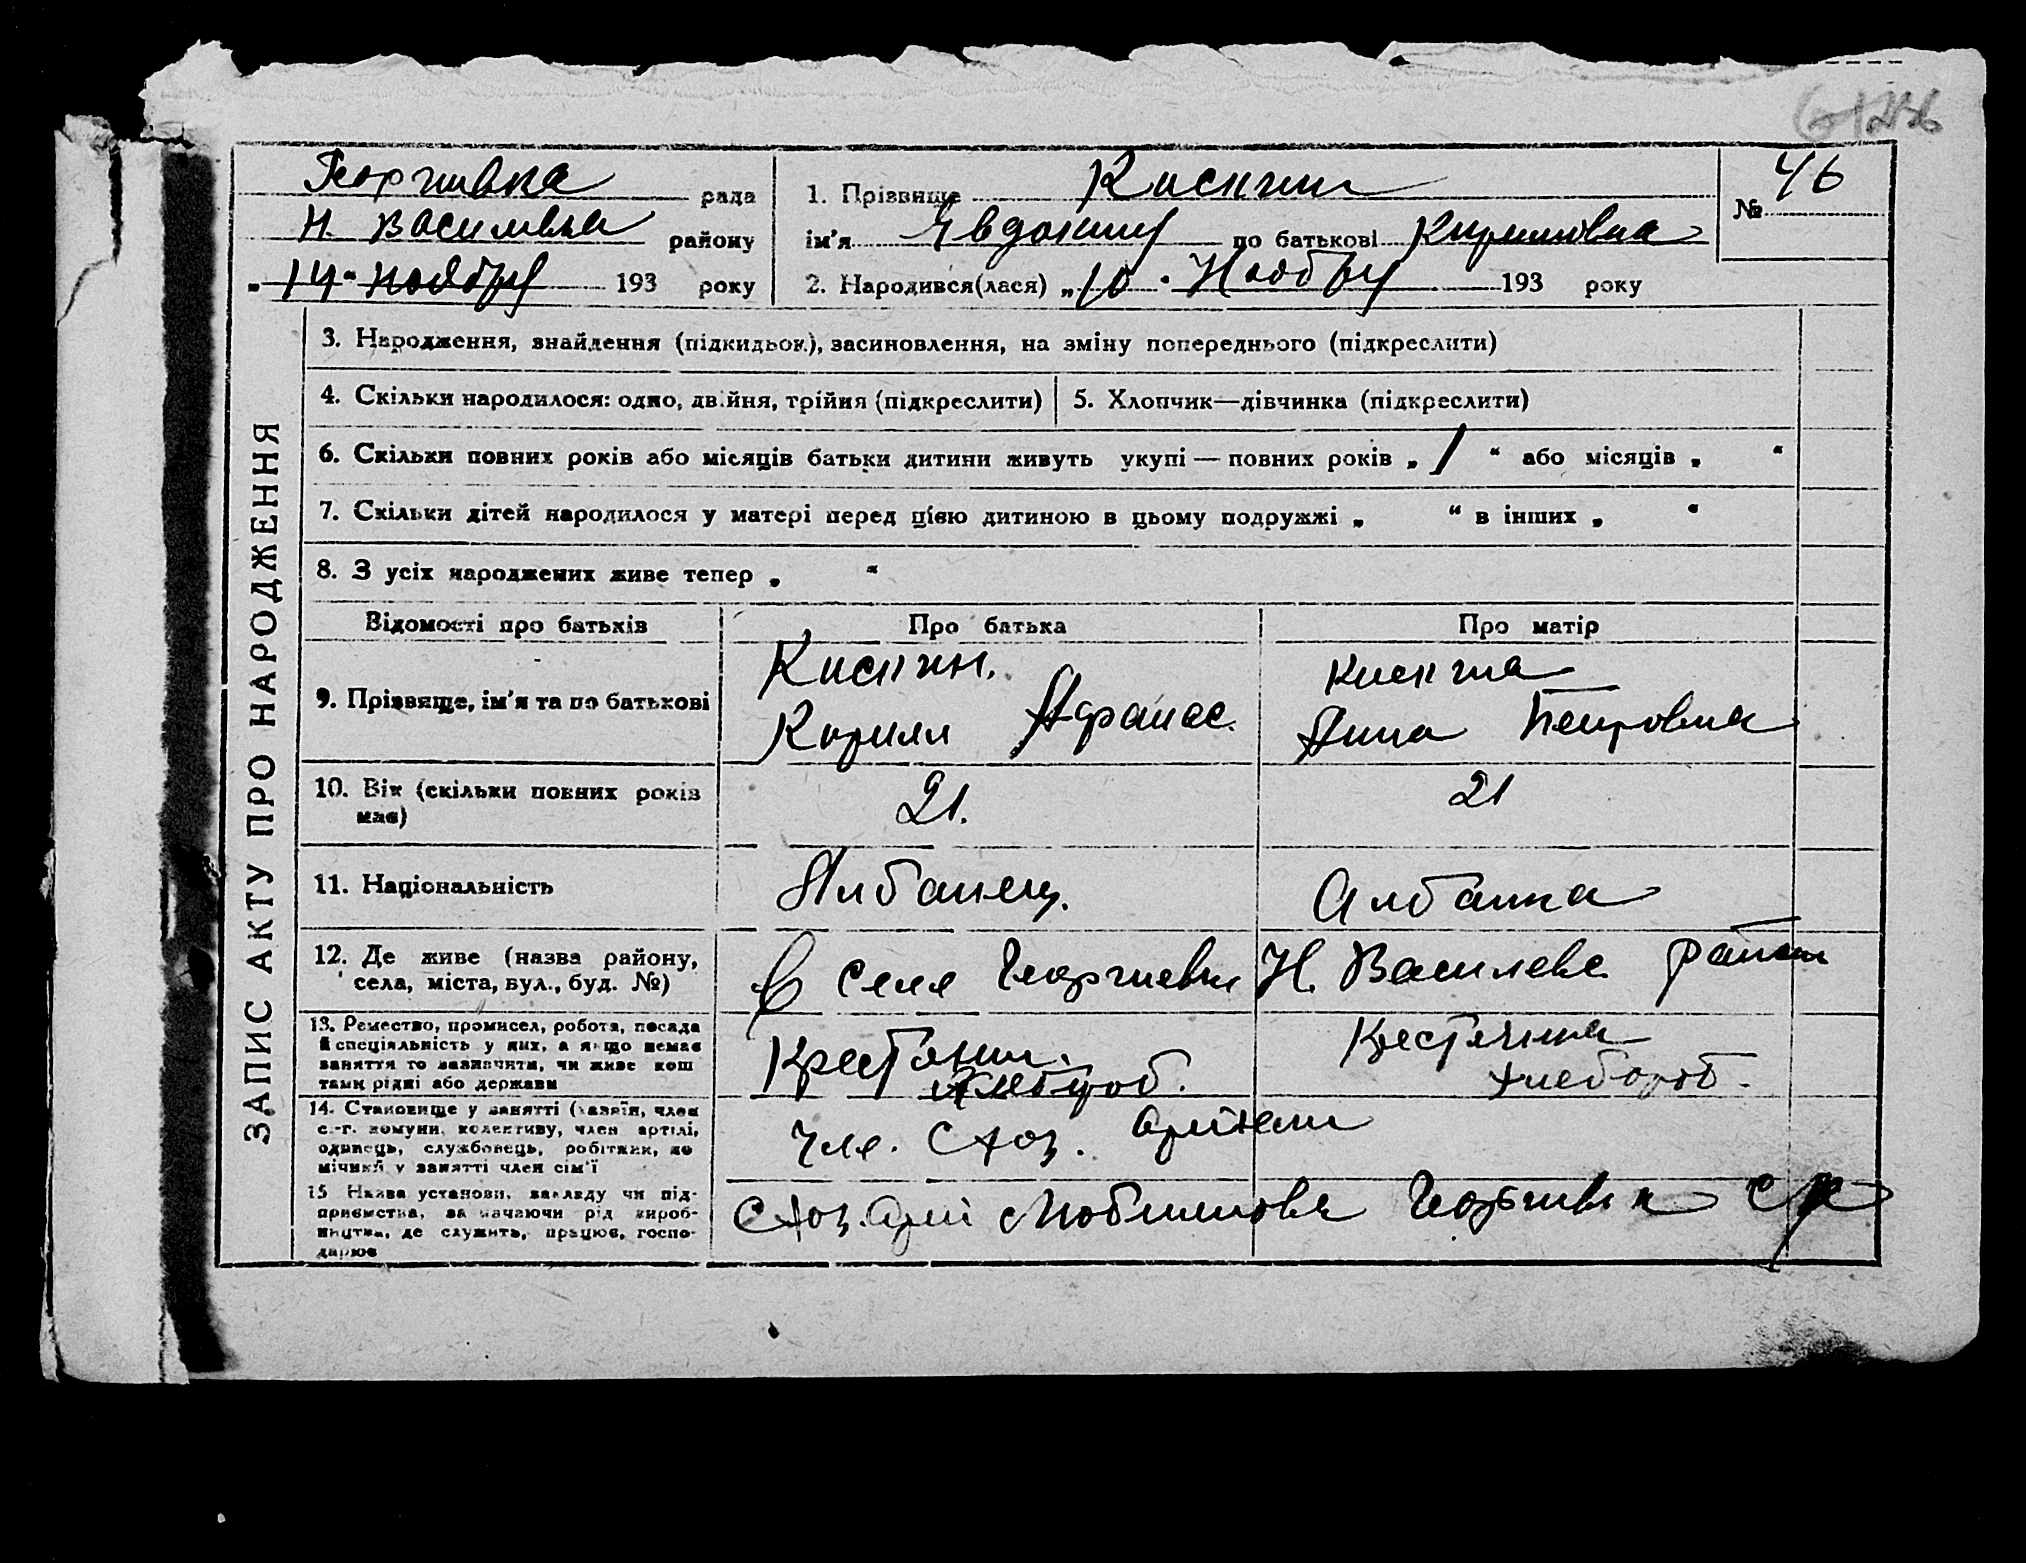 Георгиевка рада
Н. Василивка району
„ 14 " ноября 193 року
1. Прізвище
ім'я Явдокия по батькові Кирилловна
2. Народився(лася) „ 10 " Ноября 193 року
№ 46
ЗАПИС АКТУ ПРО НАРОДЖЕННЯ
3. Народження, знайдення (підкидьок), засиновлення, на зміну попереднього (підкреслити)
4. Скільки народилося: одно, двійня, трійня (підкреслити)
5. Хлопчик—дівчинка (підкреслити)
6. Скільки повних років або місяців батьки дитини живуть укупі — повних років „ 1 " або місяців „ "
7. Скільки дітей народилося у матері перед цією дитиною в цьому подружжі „ " в інших „ "
8. З усіх народжених живе тепер „ "
Відомості про батьків
Про батька
Про матір
9. Прізвище, ім'я та по батькові
Кирилл Афанас.
Анна Петровна
10. Вік (скільки повних років
має)
21.
21
11. Національність
Албанец.
Албанка
12. Де живе (назва району,
села, міста, вул., буд. №)
в селе Георгиевки Н. Василевс. район
13. Ремество, промисел, робота, посада
й спеціяльність у них, а якщо немає
заняття то зазначити, чи живе кош
тами рідні або держави
Крестянин.
хлебороб.
Крестянка
хлебороб.
14. Становище у занятті (хазяїн, член
с.-г. комуни, колективу, член артілі,
одинець, службовець, робітник, по
мічний у занятті член сім'ї
Чле. Схоз. Артели
15 Назва установи, закладу чи під-
приємства, зазначаючи рід вироб-
ництва, де служить, працює, госпо-
дарює
Схоз. Арт Георгивк